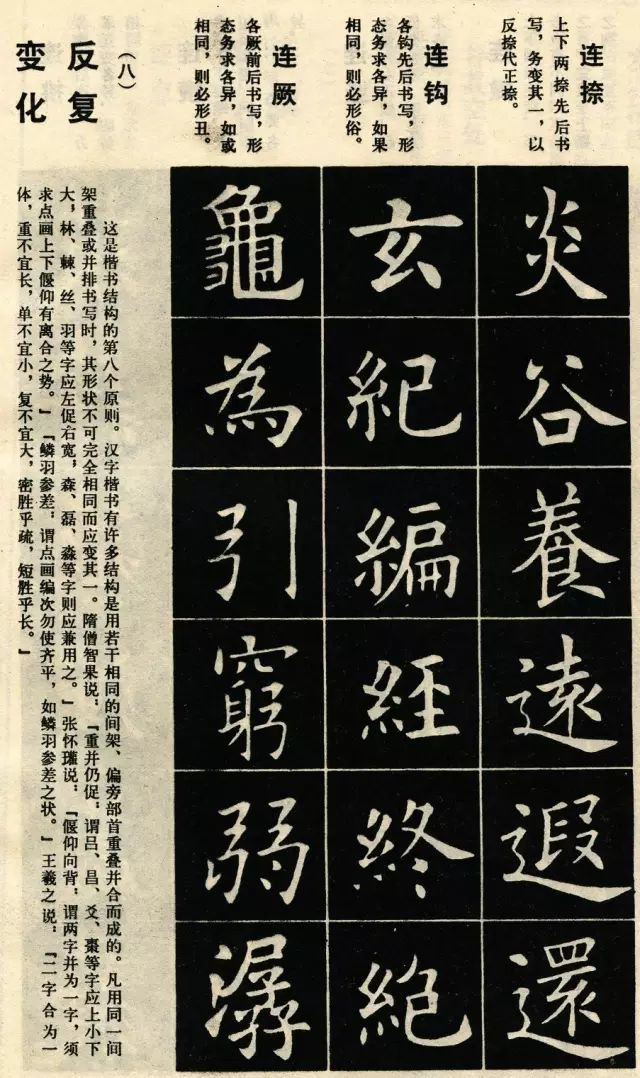 连捺
上下两捺先后书
写，务变其一，以
反捺代正捺。
炎
谷
養
遠
遐
還
连钩
各钩先后书写，形
态务求各异，如果
相同，则必形俗。
玄
紀
編
經
終
絕
连厥
各厥前后书写，形
态务求各异，如或
相同，则必形丑。
龜
為
引
窮
弱
潺
（八）
反复
变化
这是楷书结构的第八个原则。汉字楷书有许多结构是用若干相同的间架、偏旁部首重叠并合而成的。凡用同一间
架重叠或并排书写时，其形状不可完全相同而应变其一。隋僧智果说：「重并仍促，谓吕、昌、爻、棗等字应上小下
大，林、棘、丝、羽等字应左促右宽，森、磊、淼等字则应兼用之。」张怀瓘说：「偃仰向背，谓两字并为一字，须
求点画上下偃仰有离合之势。」「鳞羽参差，谓点画编次勿使齐平，如鳞羽参差之状。」王羲之说：「二字合为一
体，重不宜长，单不宜小，复不宜大，密胜乎疏，短胜乎长。」